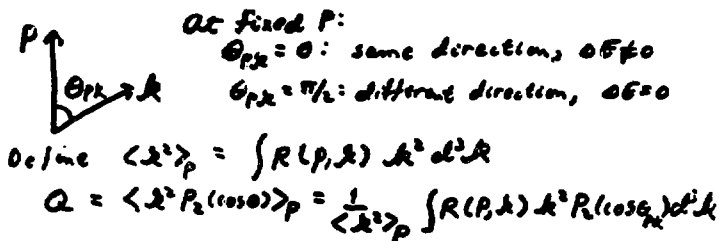 At fixed P:
P θ_{pk} = 0: same direction, ΔE≠0
θ_{pk} k θ_{pk} = π/2: different direction, ΔE=0
Define ⟨k²⟩_P = ∫R(P,k) k² d³k
Q = ⟨k² P₂(cosθ)⟩_P = 1/⟨k²⟩_P ∫R(P,k) k² P₂(cosθ_{pk}) d³k